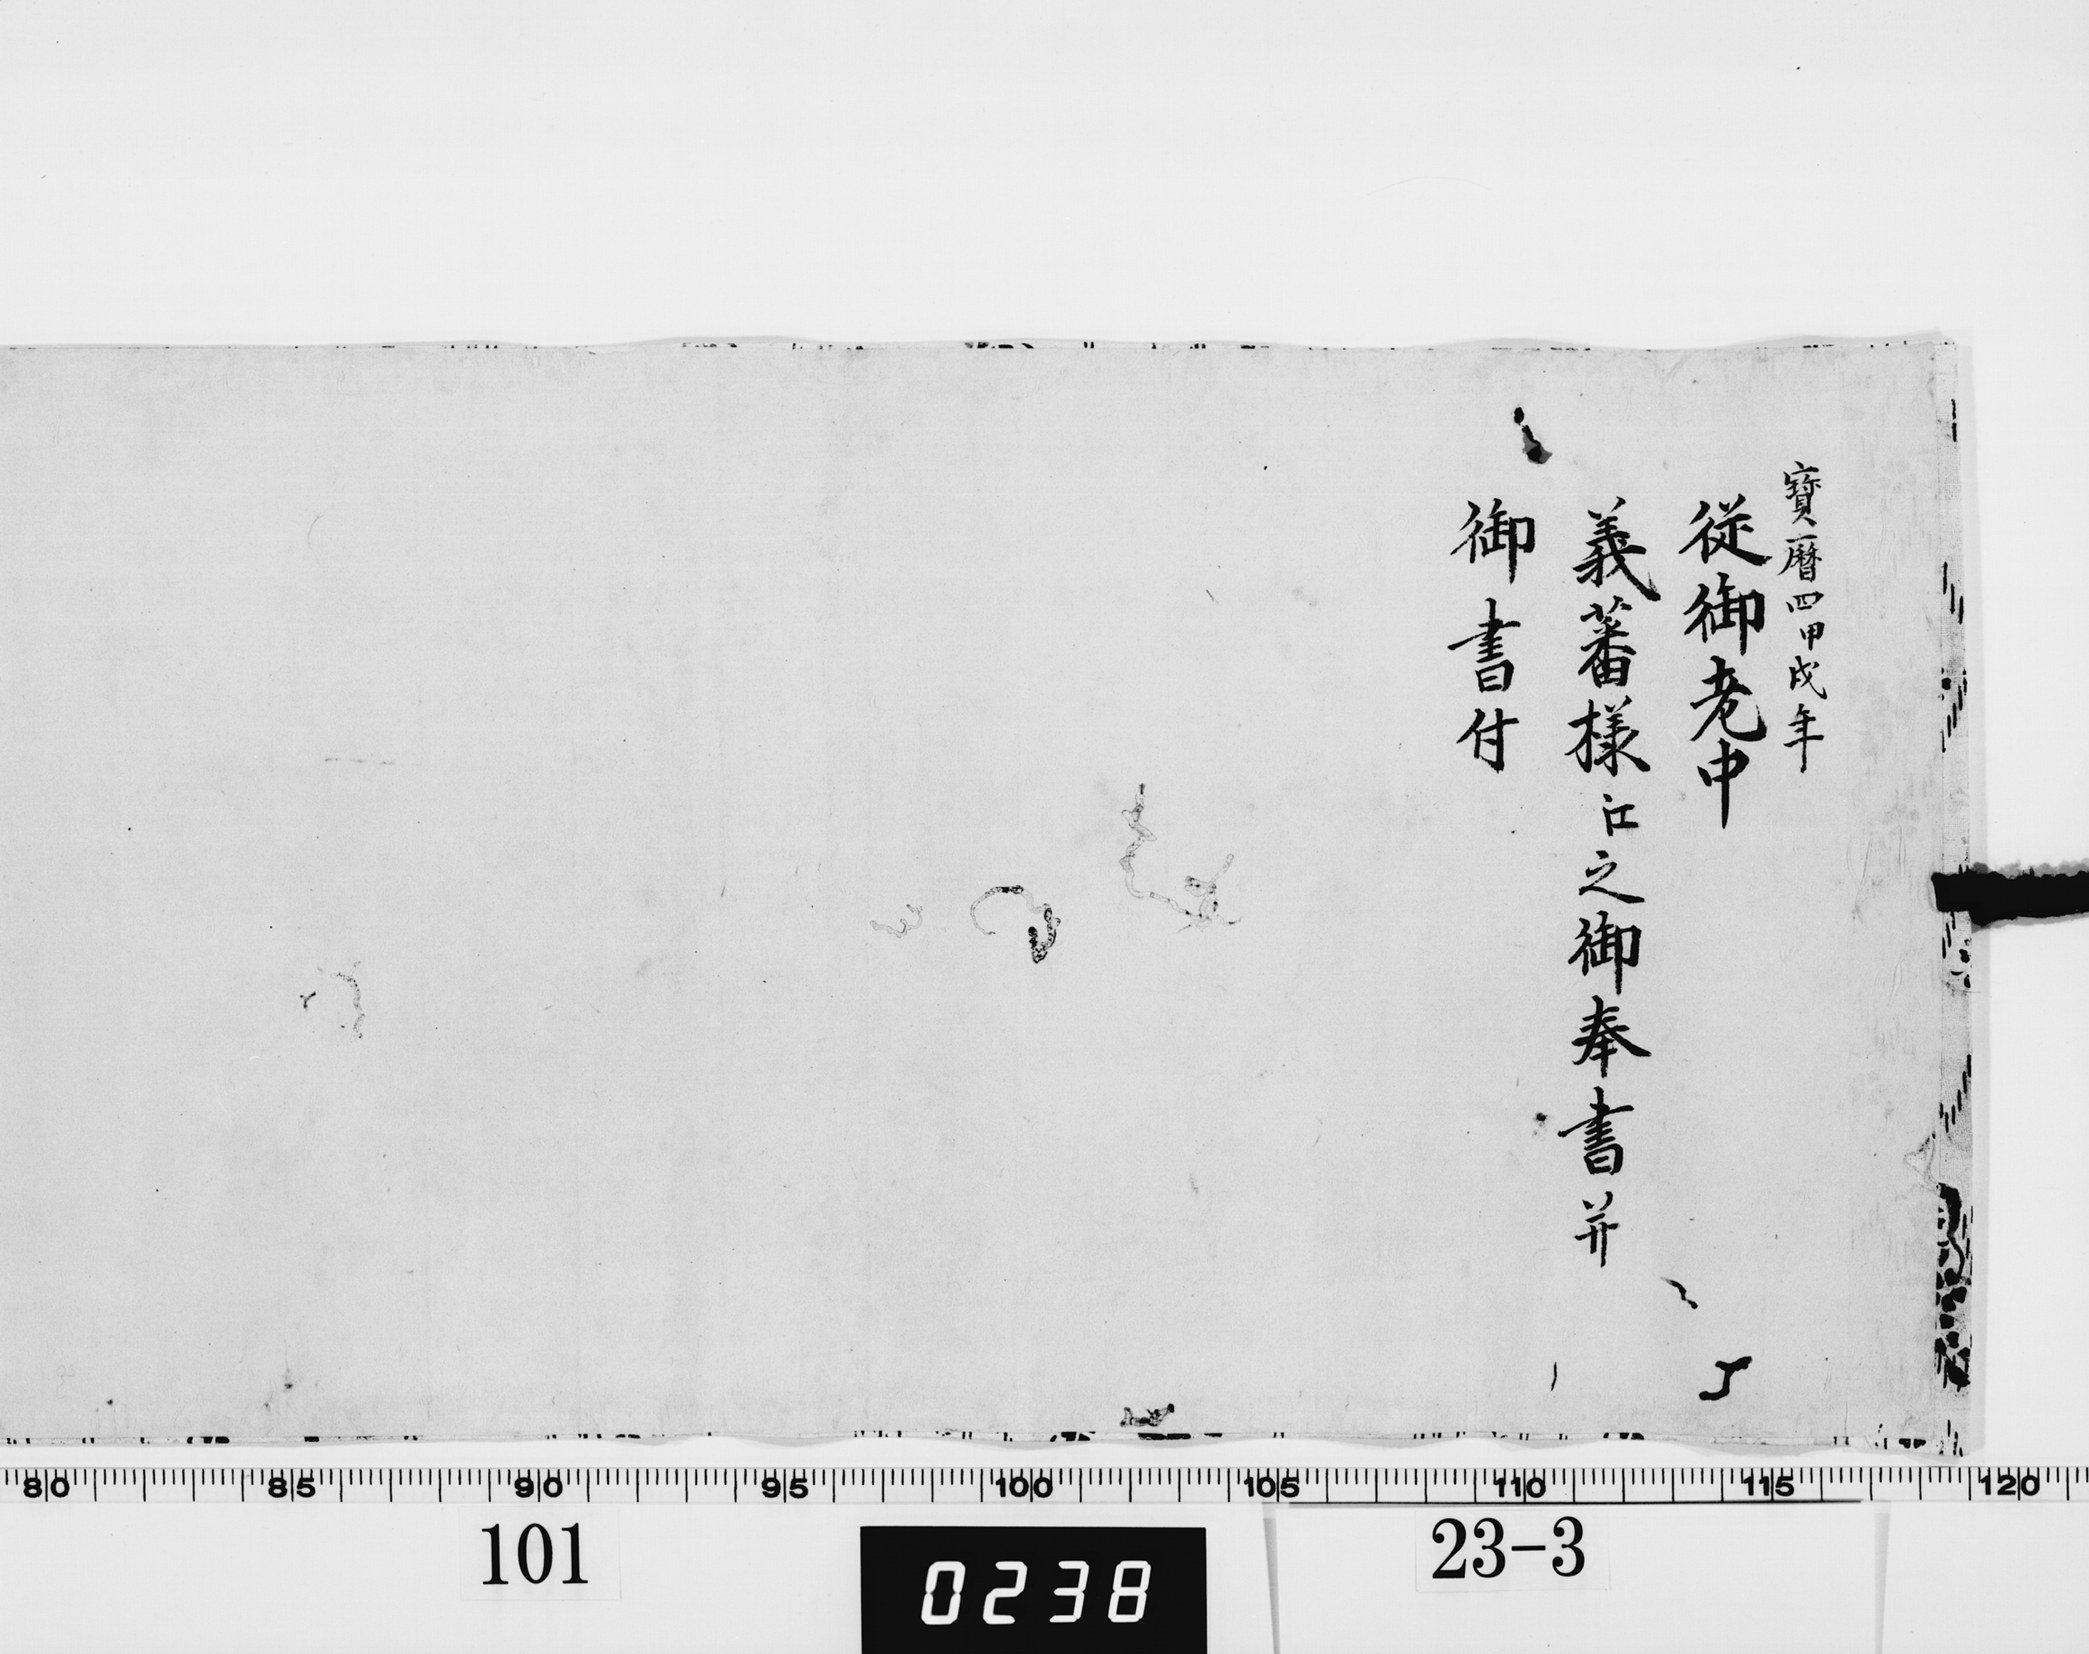 寳暦四甲戌年
従御老中
義蕃様江之御奉書并
御書付
80 85 90 95 100 105 110 115 120
101
0238
23-3